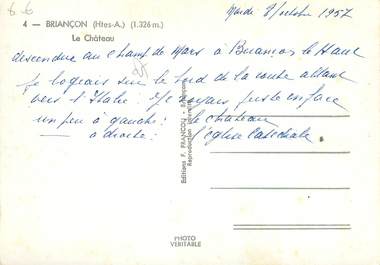 6.6
Mardi 8/octobre 1957
4 — BRIANÇON (Htes-A.) (1.326 m.)
Le Château
descendue au champ de Mars à Briançon le Haut
Je logeais sur le bord de la route allant
vers l'Italie: Je voyais juste en face
un peu à gauche: le chateau
à droite: l'église
Editions F. FRANCOU - Briançon
Reproduction interdite
PHOTO
VÉRITABLE